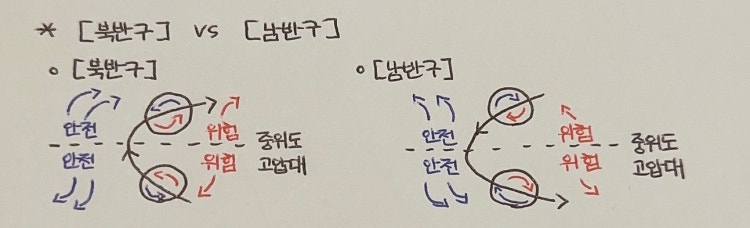 * [북반구] vs [남반구]
○ [북반구]
안전 위험
안전 위험
중위도
고압대
○ [남반구]
안전 위험
안전 위험
중위도
고압대